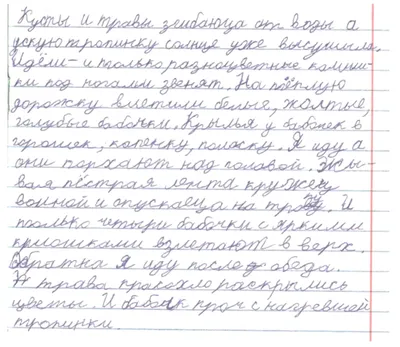 Кусты и травы згибаюца от воды а
ускую тропинку солнце уже высушила.
Идёш и только разноцветные камиш-
ки под ногами звенят. На тёплую
дорожку влитили белые, жолтые,
голубые бабочки. Крылья у бабочек в
горошек, капенку, полоску. Я иду а
они порхают над головой. Жы-
вая пёстрая лента кружеця
волной и спускаеца на траву. И
только четыри бабочки с яркими
крлошками взлетают в верх.
Обратна я иду после обеда.
трава раскрылись
цветы. И бабочк проч с нагревшой
тропинки.